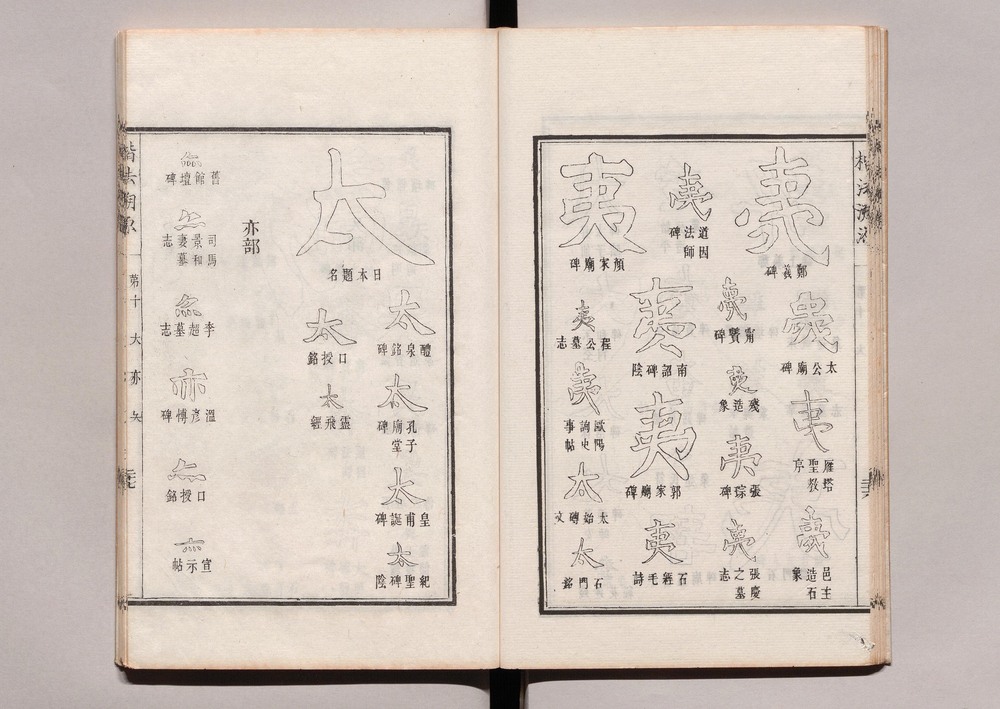 楷法溯源
夷
鄭義碑
夷
太公廟碑
夷
雁塔聖教序
夷
邑主造石象
夷
道因法師碑
夷
甯贙碑
夷
殘造象
夷
張琮碑
夷
張慶之墓志
夷
顏家廟碑
夷
南詔碑陰
夷
郭家廟碑
夷
石經毛詩
夷
程公墓志
夷
歐陽詢史事帖
太
太始磚文
太
石門銘
太
日本題名
太
醴泉銘碑
太
孔子廟堂碑
太
皇甫誕碑
太
紀聖碑陰
太
口授銘
太
靈飛經
亦部
亦
舊館壇碑
亦
司馬景和妻墓志
亦
李超墓志
亦
溫彥博碑
亦
口授銘
亦
宣示帖
楷法溯源
第十 大 亦